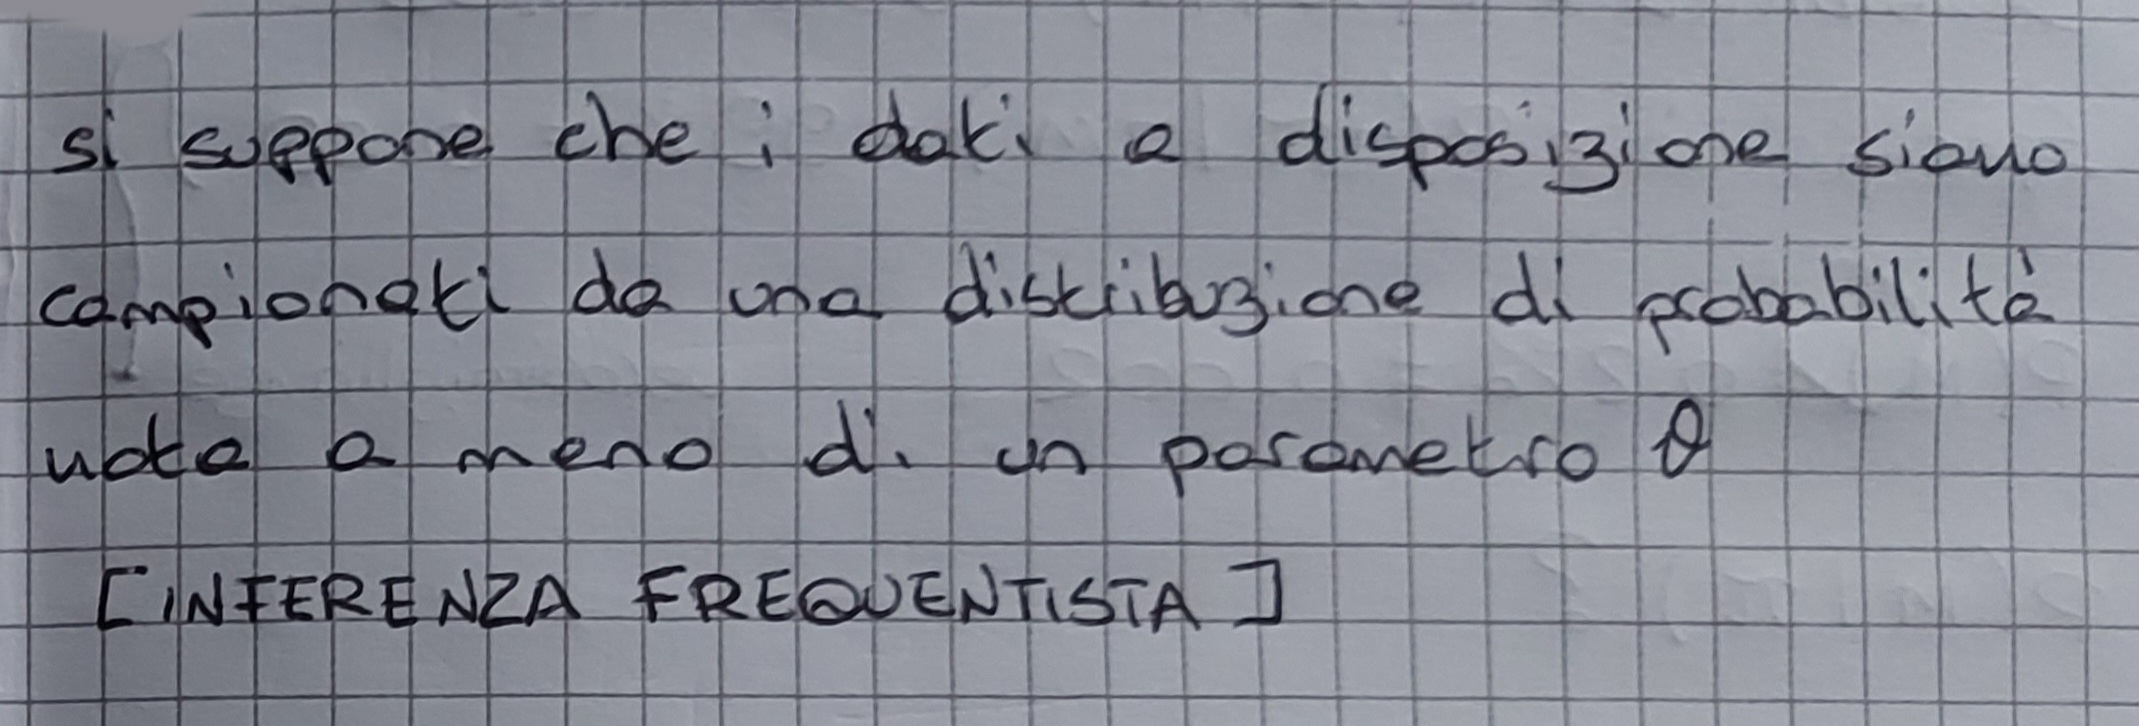 si suppone che i dati a disposizione siano
campionati da una distribuzione di probabilità
nota a meno di un parametro θ
[INFERENZA FREQUENTISTA]